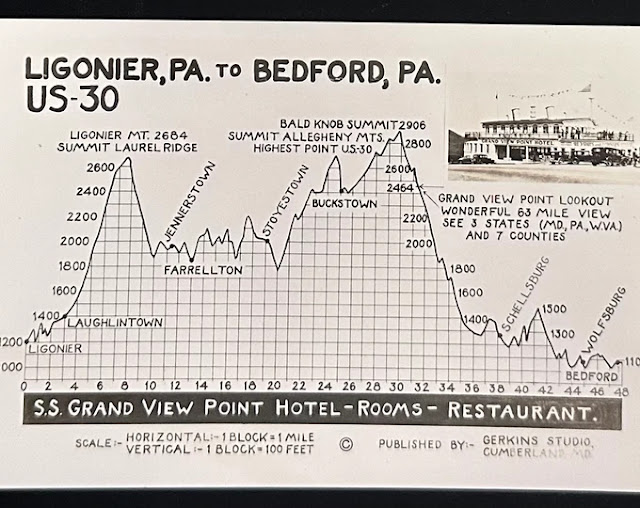 LIGONIER, PA. TO BEDFORD, PA.
US-30
LIGONIER MT. 2684
SUMMIT LAUREL RIDGE
BALD KNOB SUMMIT 2906
SUMMIT ALLEGHENY MTS.
HIGHEST POINT U.S-30
GRAND VIEW POINT HOTEL
2600
2400
2200
2000
1800
1400
1200
000
JENNERSTOWN
FARRELLTON
STOYESTOWN
BUCKSTOWN
LAUGHLINTOWN
LIGONIER
2800
2600
2464
2200
2000
GRAND VIEW POINT LOOKOUT
WONDERFUL 63 MILE VIEW
SEE 3 STATES (MD, PA, W.VA)
AND 7 COUNTIES
1800
1600
1400
SCHELLSBURG
1500
1300
WOLFSBURG
BEDFORD
110
0 2 4 6 8 10 12 14 16 18 20 22 24 26 28 30 32 34 36 38 40 42 44 46 48
S.S. GRAND VIEW POINT HOTEL-ROOMS-RESTAURANT.
SCALE:- HORIZONTAL:-1 BLOCK=1 MILE
VERTICAL :-1 BLOCK=100 FEET
© PUBLISHED BY:- GERKINS STUDIO,
CUMBERLAND, MD.